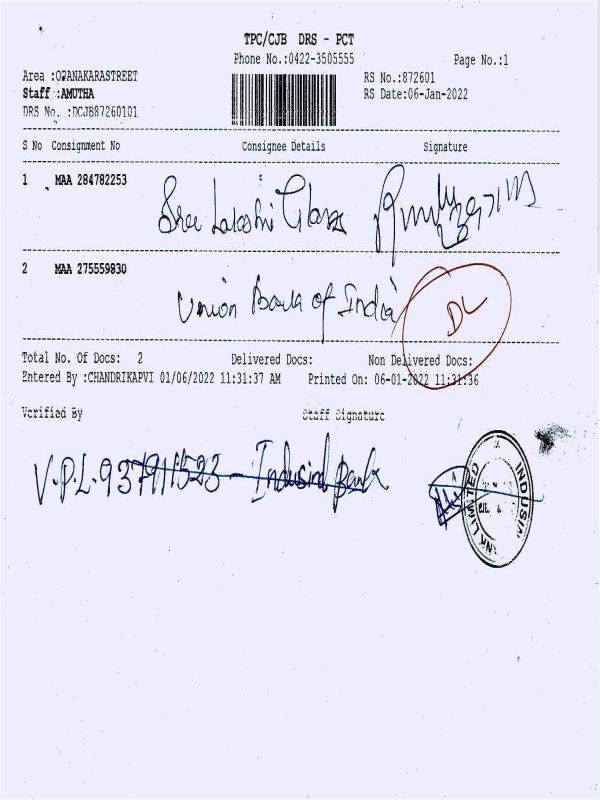 TPC/CJB DRS - PCT
Phone No.:0422-3505555 Page No.:1
Area :OJANAKARASTREET RS No.:872601
Staff :AMUTHA RS Date:06-Jan-2022
DRS No. :DCJB87260101
S No Consignment No Consignee Details Signature
1 MAA 284782253 Sree Lakshi Glass
2 MAA 275559830 Union Bank of India DL
Total No. Of Docs: 2 Delivered Docs: Non Delivered Docs:
Entered By :CHANDRIKAPVI 01/06/2022 11:31:37 AM Printed On: 06-01-2022 11:31:36
Verified By Staff Signature
V.P.L. 937911523 - Indusind Bank
INDUSIN
NK LIMITED